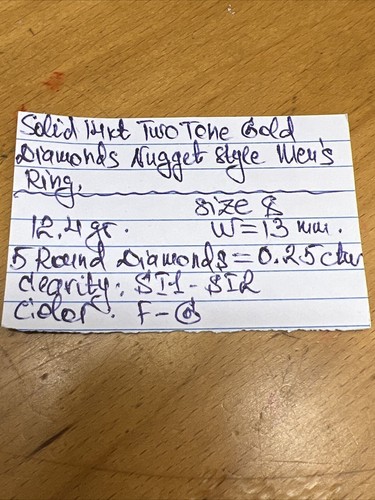 Solid 14kt Two Tone Gold
Diamonds Nugget Style Men's
Ring.
size 8
12.4 gr. W=13 mm.
5 Round Diamonds=0.25 ctw
clearity: SI1-SI2
Color: F-G